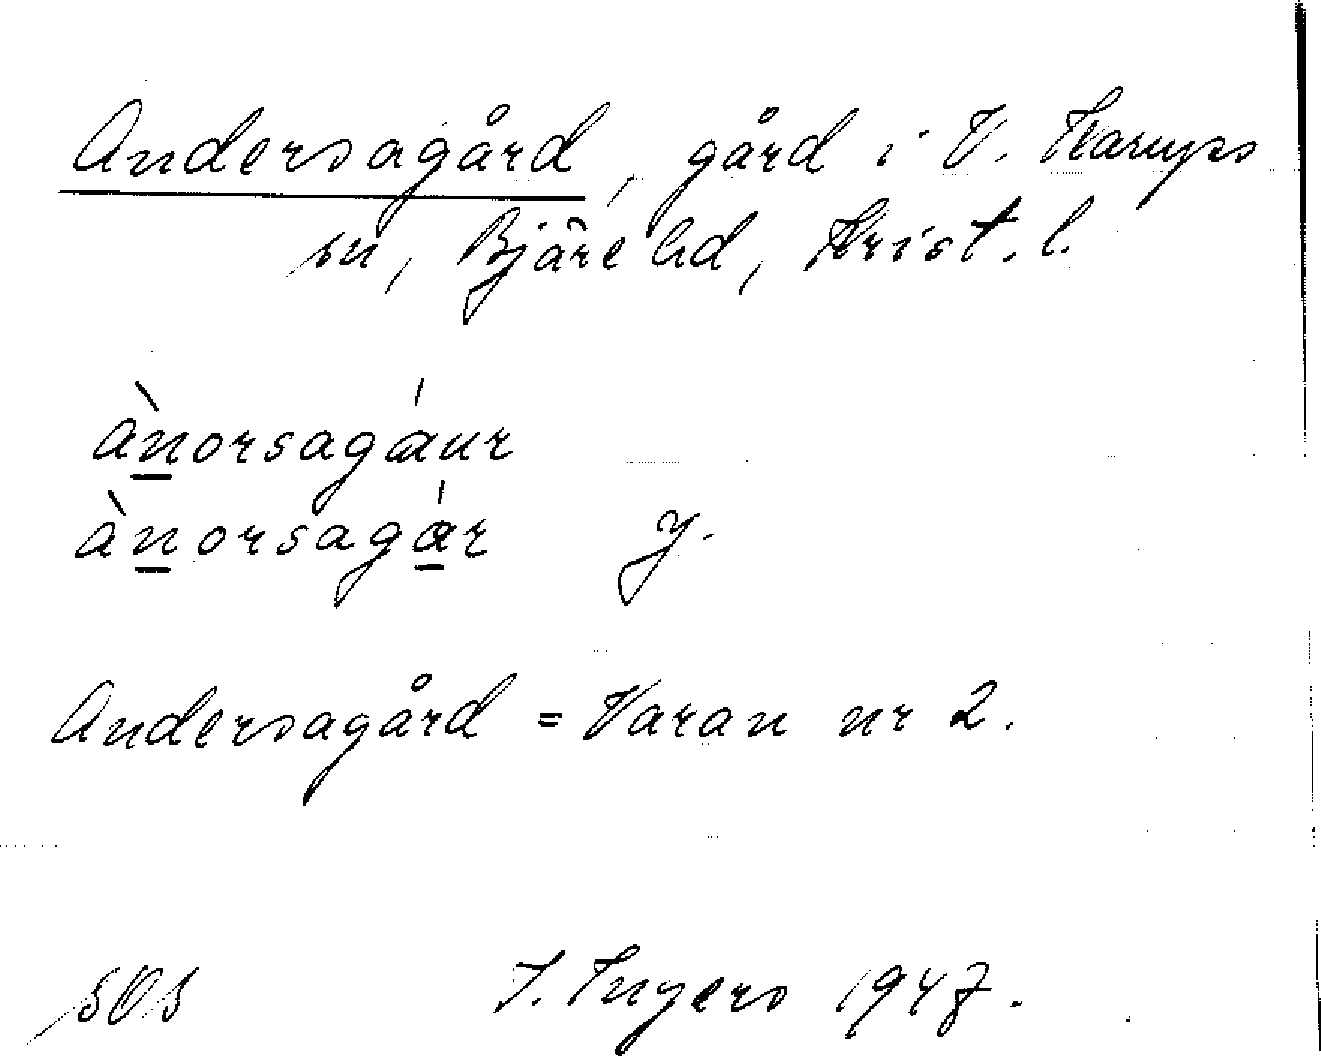 Andersagård, gård i V. Karups
sn, Bjäre hd, Krist. l.
ànorsagáur
ànorsagár y.
Andersagård = Varan nr 2.
I. Ingers 1947.